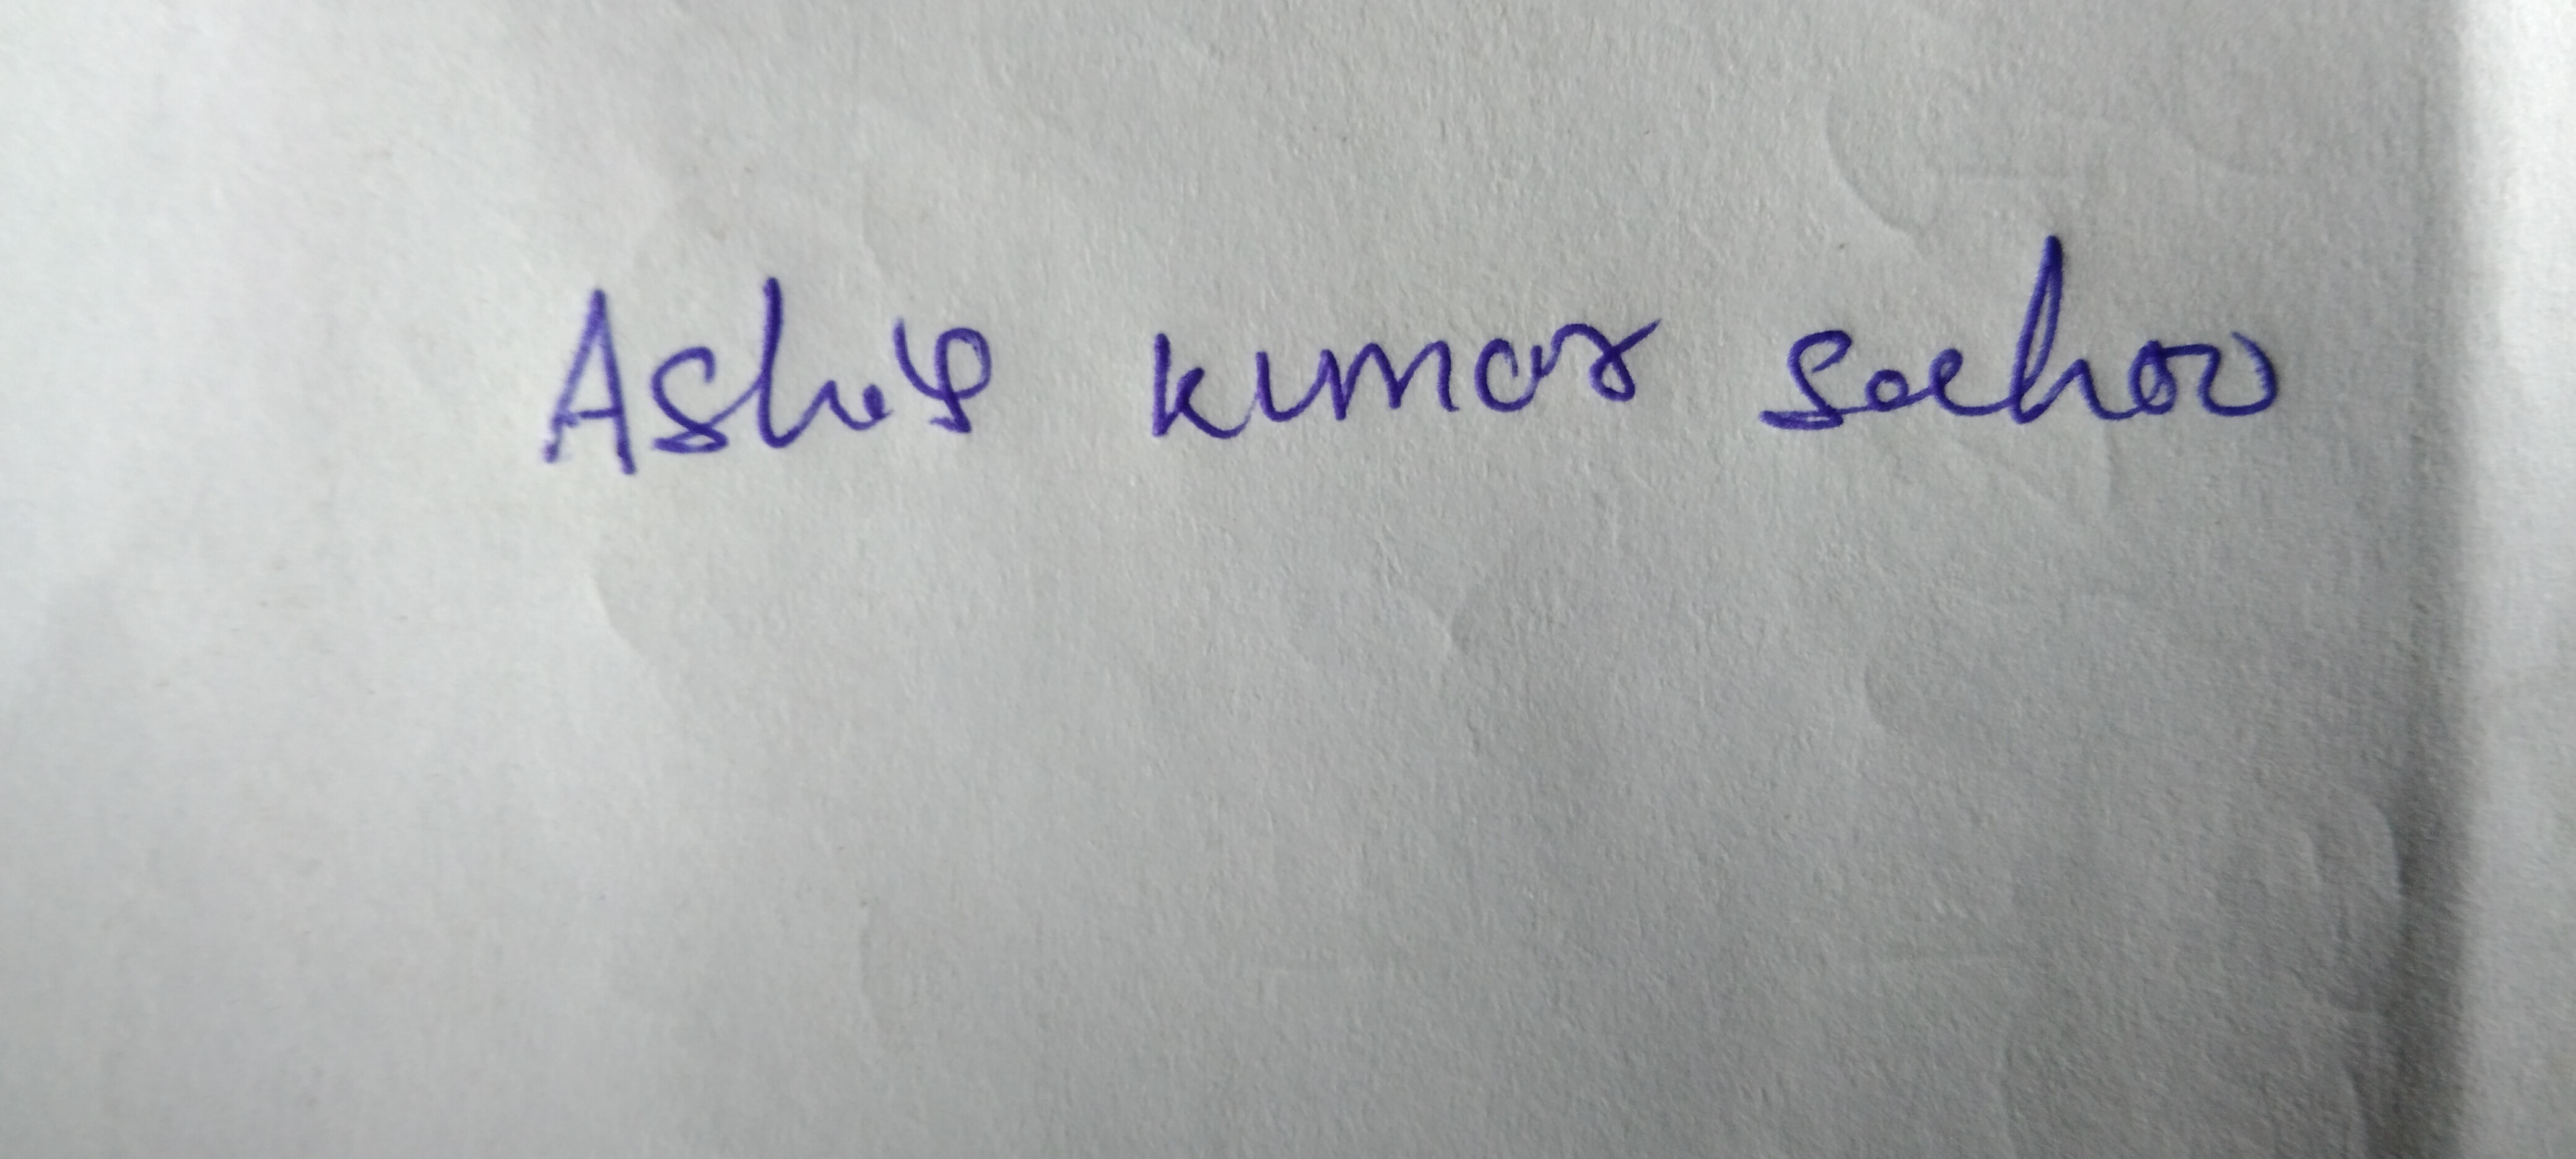 Ashis kumar sahoo